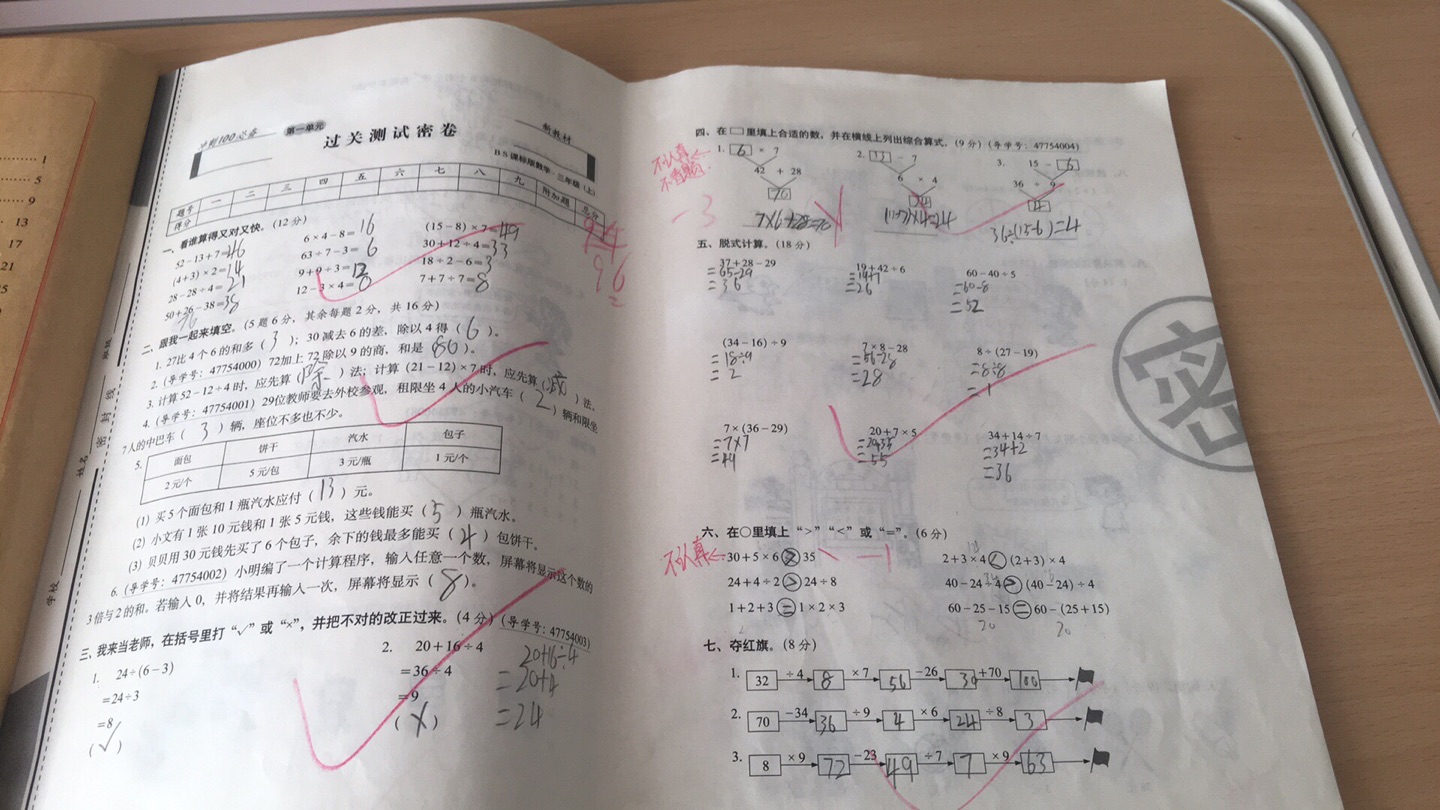 1
5
9
13
17
21
25
冲刺100必备
第一单元
新教材
过关测试密卷
BS课标版数学·三年级(上)
题号 一 二 三 四 五 六 七 八 九 附加题 总分
得分
96
一、看谁算得又对又快。(12分)
52-13+7=46 6×4-8=16 (15-8)×7=49
(4+3)×2=14 63÷7-3=6 30+12÷4=33
28-28÷4=21 9+9÷3=12 18÷2-6=3
50+26-38=38 12-3×4=0 7+7÷7=8
二、跟我一起来填空。(5题6分,其余每题2分,共16分)
1. 27比4个6的和多( 3 );30减去6的差,除以4得( 6 )。
2. (导学号:47754000) 72加上72除以9的商,和是( 80 )。
3. 计算52-12÷4时,应先算(除)法;计算(21-12)×7时,应先算(减)法。
4. (导学号:47754001) 29位教师要去外校参观,租限坐4人的小汽车( 2 )辆和限坐
7人的中巴车( 3 )辆,座位不多也不少。
5. 面包 饼干 汽水 包子
2元/个 5元/包 3元/瓶 1元/个
(1) 买5个面包和1瓶汽水应付( 13 )元。
(2) 小文有1张10元钱和1张5元钱,这些钱能买( 5 )瓶汽水。
(3) 贝贝用30元钱先买了6个包子,余下的钱最多能买( 4 )包饼干。
6. (导学号:47754002) 小明编了一个计算程序,输入任意一个数,屏幕将显示这个数的
3倍与2的和。若输入0,并将结果再输入一次,屏幕将显示( 8 )。
三、我来当老师,在括号里打“√”或“×”,并把不对的改正过来。(4分)(导学号:47754003)
1. 24÷(6-3) 2. 20+16÷4 20+16÷4
=24÷3 =36÷4 =20+4
=8 =9 =24
(√) (×)
学校
姓名
班级
密封线
四、在□里填上合适的数,并在横线上列出综合算式。(9分)(导学号:47754004)
不认真
不看题
-3
1. 6 × 7 2. 13 - 7 3. 15 - 6
42 + 28 6 × 4 36 ÷ 9
70 4
7×6+28=70 36÷(15-6)=4
五、脱式计算。(18分)
37+28-29 19+42÷6 60-40÷5
=65-29 =19+7 =60-8
=36 =26 =52
(34-16)÷9 7×8-28 8÷(27-19)
=18÷9 =56-28 =8÷8
=2 =28 =1
7×(36-29) 20+7×5 34+14÷7
=7×7 =20+35 =34+2
=55 =36
六、在○里填上“>”“<”或“=”。(6分)
不认真 30+5×6 35 -1 2+3×4 < (2+3)×4
24+4÷2 > 24÷8 40-24÷4 > (40-24)÷4
1+2+3 = 1×2×3 60-25-15 = 60-(25+15)
20 20
七、夺红旗。(8分)
1. 32 ÷4 8 ×7 56 -26 30 +70 100
2. 70 -34 36 ÷9 4 ×6 24 ÷8 3
3. 8 ×9 72 -23 49 ÷7 7 ×9 63
密